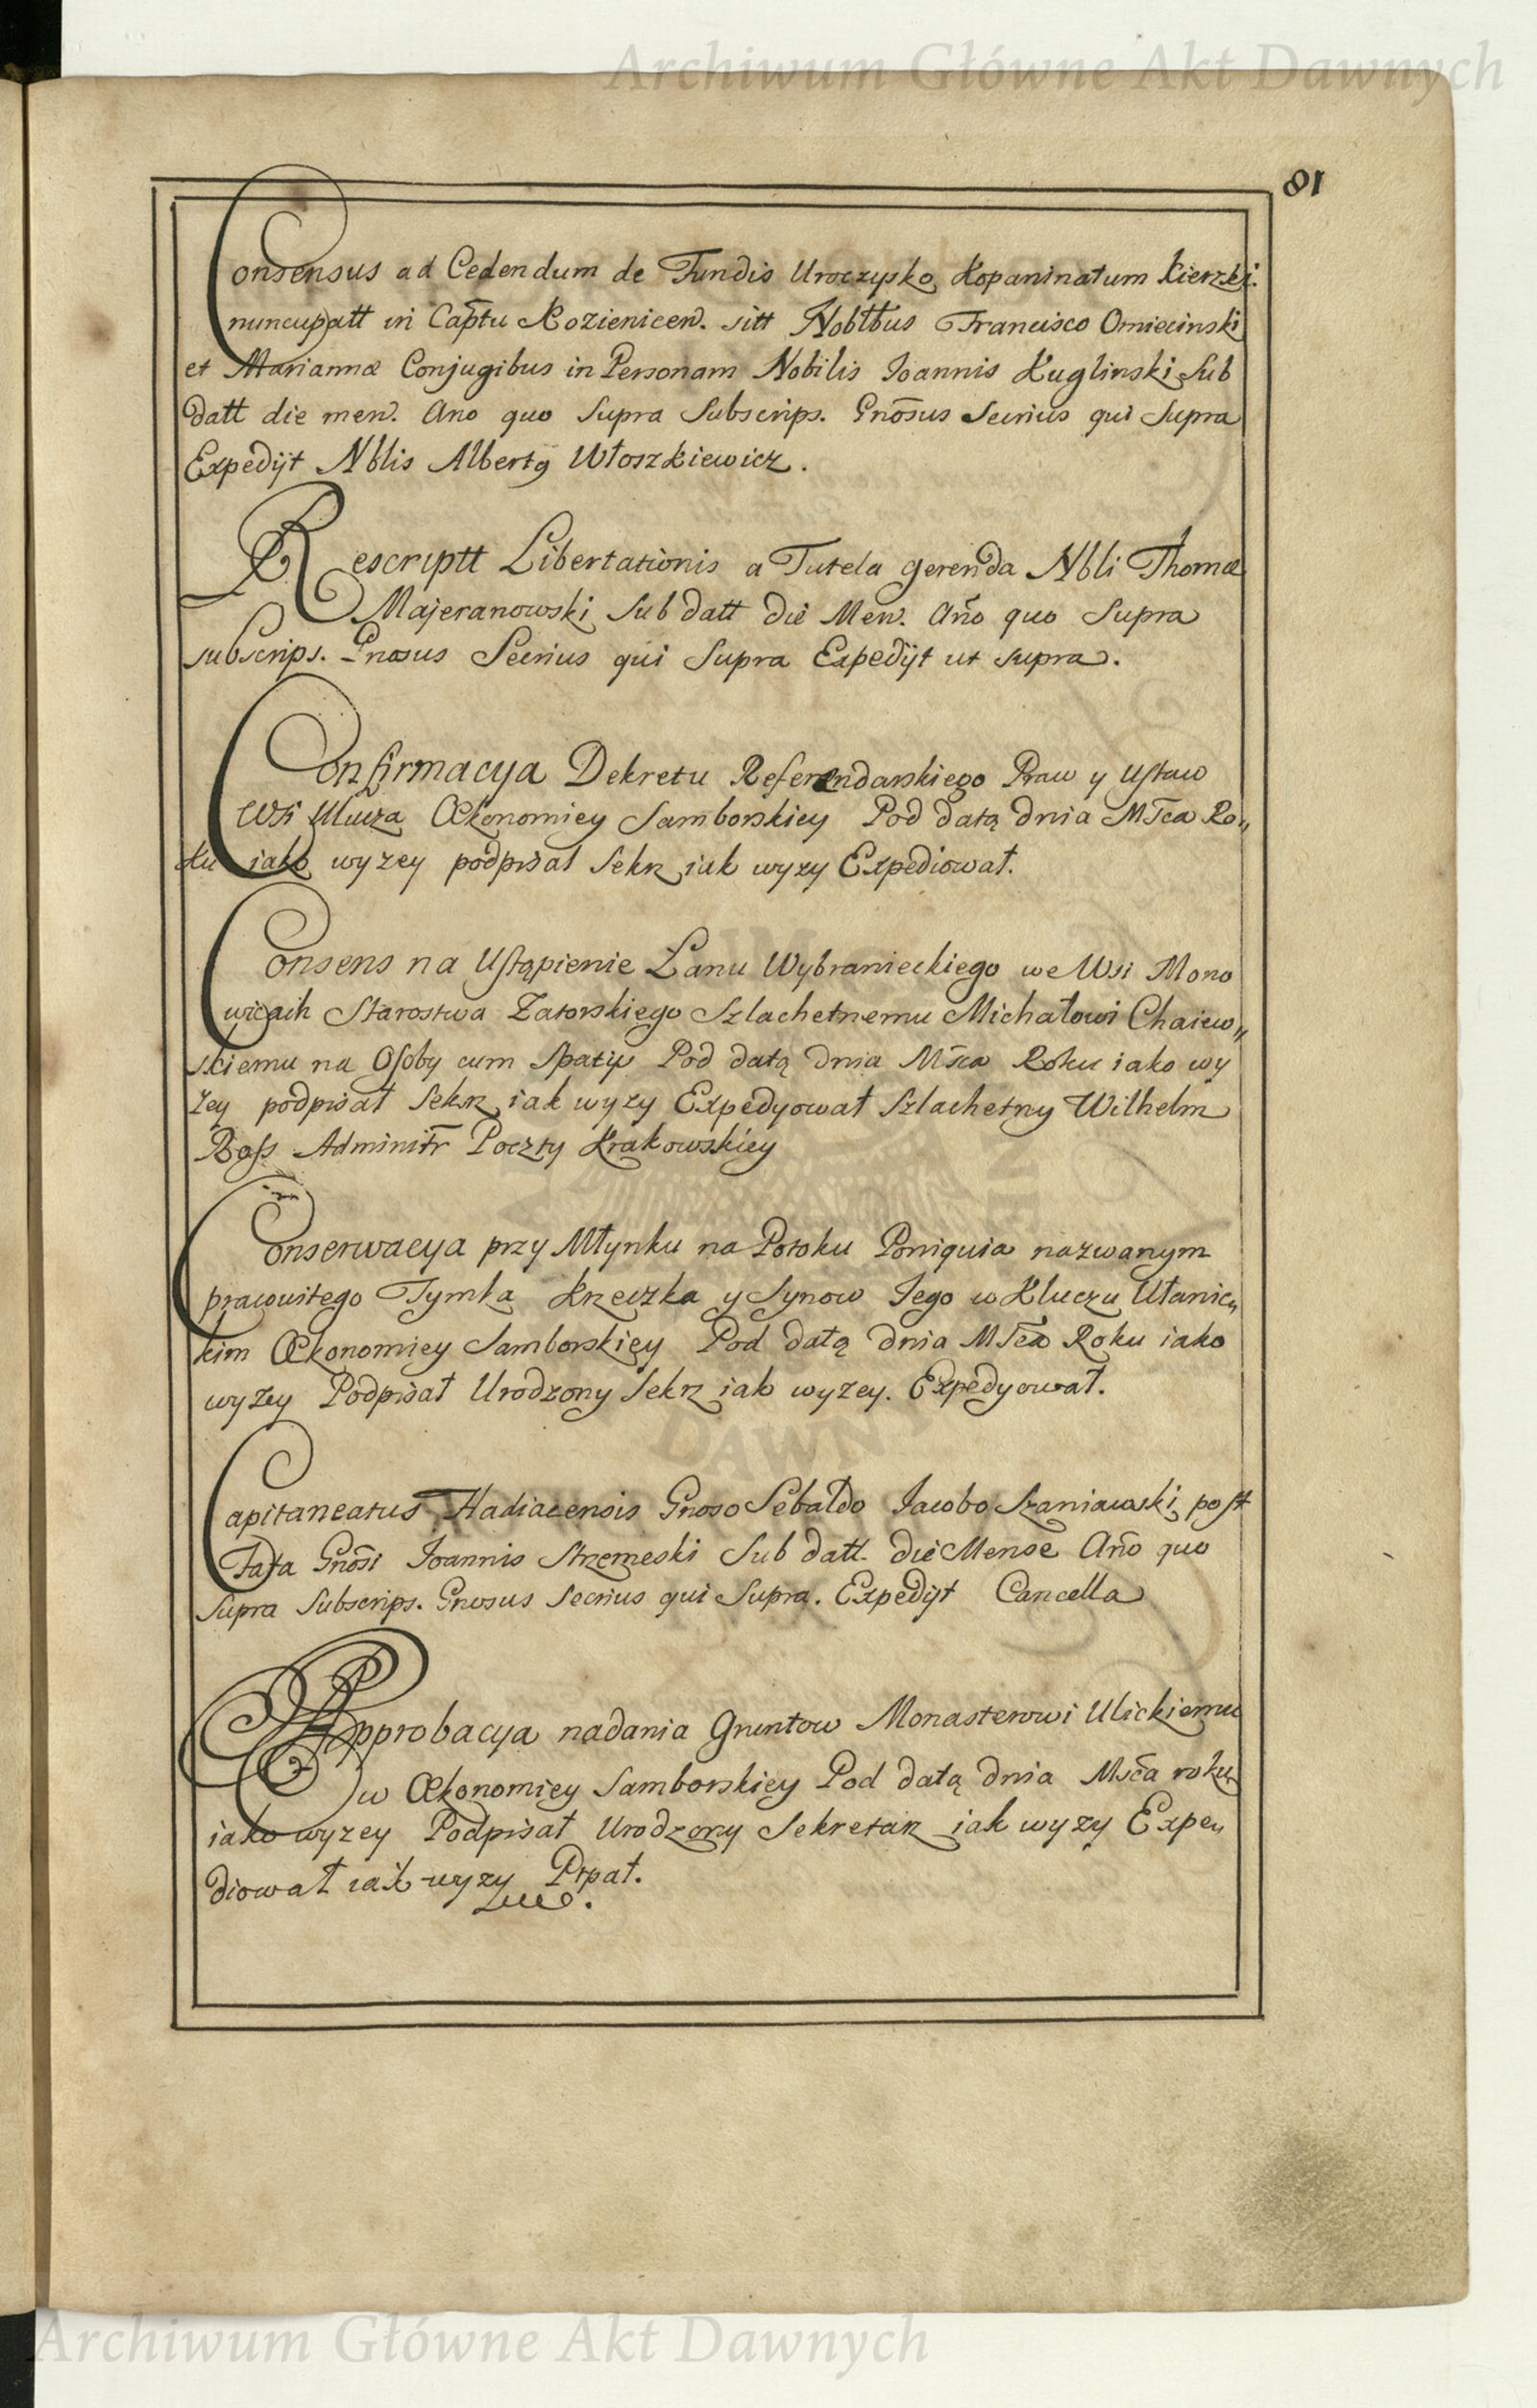 Archiwum Główne Akt Dawnych
81
Consensus ad Cedendum de Fundis Uroczysko Kopaninatum Kierzki.
nuncupatt in Capttu Kozienicen. sitt Nobltbus Francisco Omiecinski
et Mariannæ Conjugibus in Personam Nobilis Joannis Kuglinski Sub
datt die men. Ano quo Supra Subscrips. Gnosus Secrius qui Supra
Expedijt Nblis Alberty Włoszkiewicz.
Rescriptt Libertationis a Tutela gerenda Nbli Thomæ
Majeranowski Sub datt die Men. Año quo Supra
subscrips. Gnosus Secrius qui Supra Expedijt ut supra.
Confirmacya Dekretu Referendarskiego Praw y Ustaw
Wsi Œkonomiey Samborskiey Pod datą dnia Msca Ro„
ku iako wyzey podpisał Sekr iak wyzy Expediował.
Consens na Ustąpienie Łanu Wybranieckiego we Wsi Mono
wicach Starostwa Zatorskiego Szlachetnemu Michałowi Chaiew„
skiemu na Osoby cum Spatijs Pod datą dnia Msca Roku iako wy
zey podpisał Sekr iak wyzy Expedyował Szlachetny Wilhelm
Bass Adminitr Poczty Krakowskiey
Conserwacya przy Młynku na Potoku Poniquia nazwanym
pracowitego Tymka Krzeczka y Synow Jego w Kluczu Ułanic„
kim Œkonomiey Samborskiey Pod datą dnia Msca Roku iako
wyzey Podpisał Urodzony Sekr iak wyzey. Expedyował.
Capitaneatus Hadiacensis Gnoso Sebaldo Jacobo Szaniawski post
Fata Gnosi Joannis Strzemeski Sub datt. die Mense Año quo
Supra Subscrips. Gnosus Secrius qui Supra. Expedijt Cancella
Approbacya nadania Gruntow Monasterowi Ulickiemu
w Œkonomiey Samborskiey Pod datą dnia Msca roku
iako wyzey Podpisał Urodzony Sekretarz iak wyzy Expe„
diował iak wyzy Ptpat.
Archiwum Główne Akt Dawnych